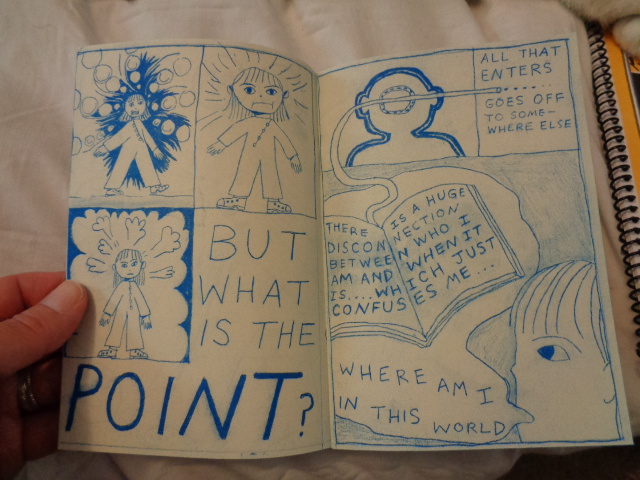 BUT
WHAT
IS THE
POINT?
ALL THAT
ENTERS
GOES OFF
TO SOME-
WHERE ELSE
THERE IS A HUGE
DISCONNECTION
BETWEEN WHO I
AM AND WHEN IT
IS....WHICH JUST
CONFUSES ME...
WHERE AM I
IN THIS WORLD